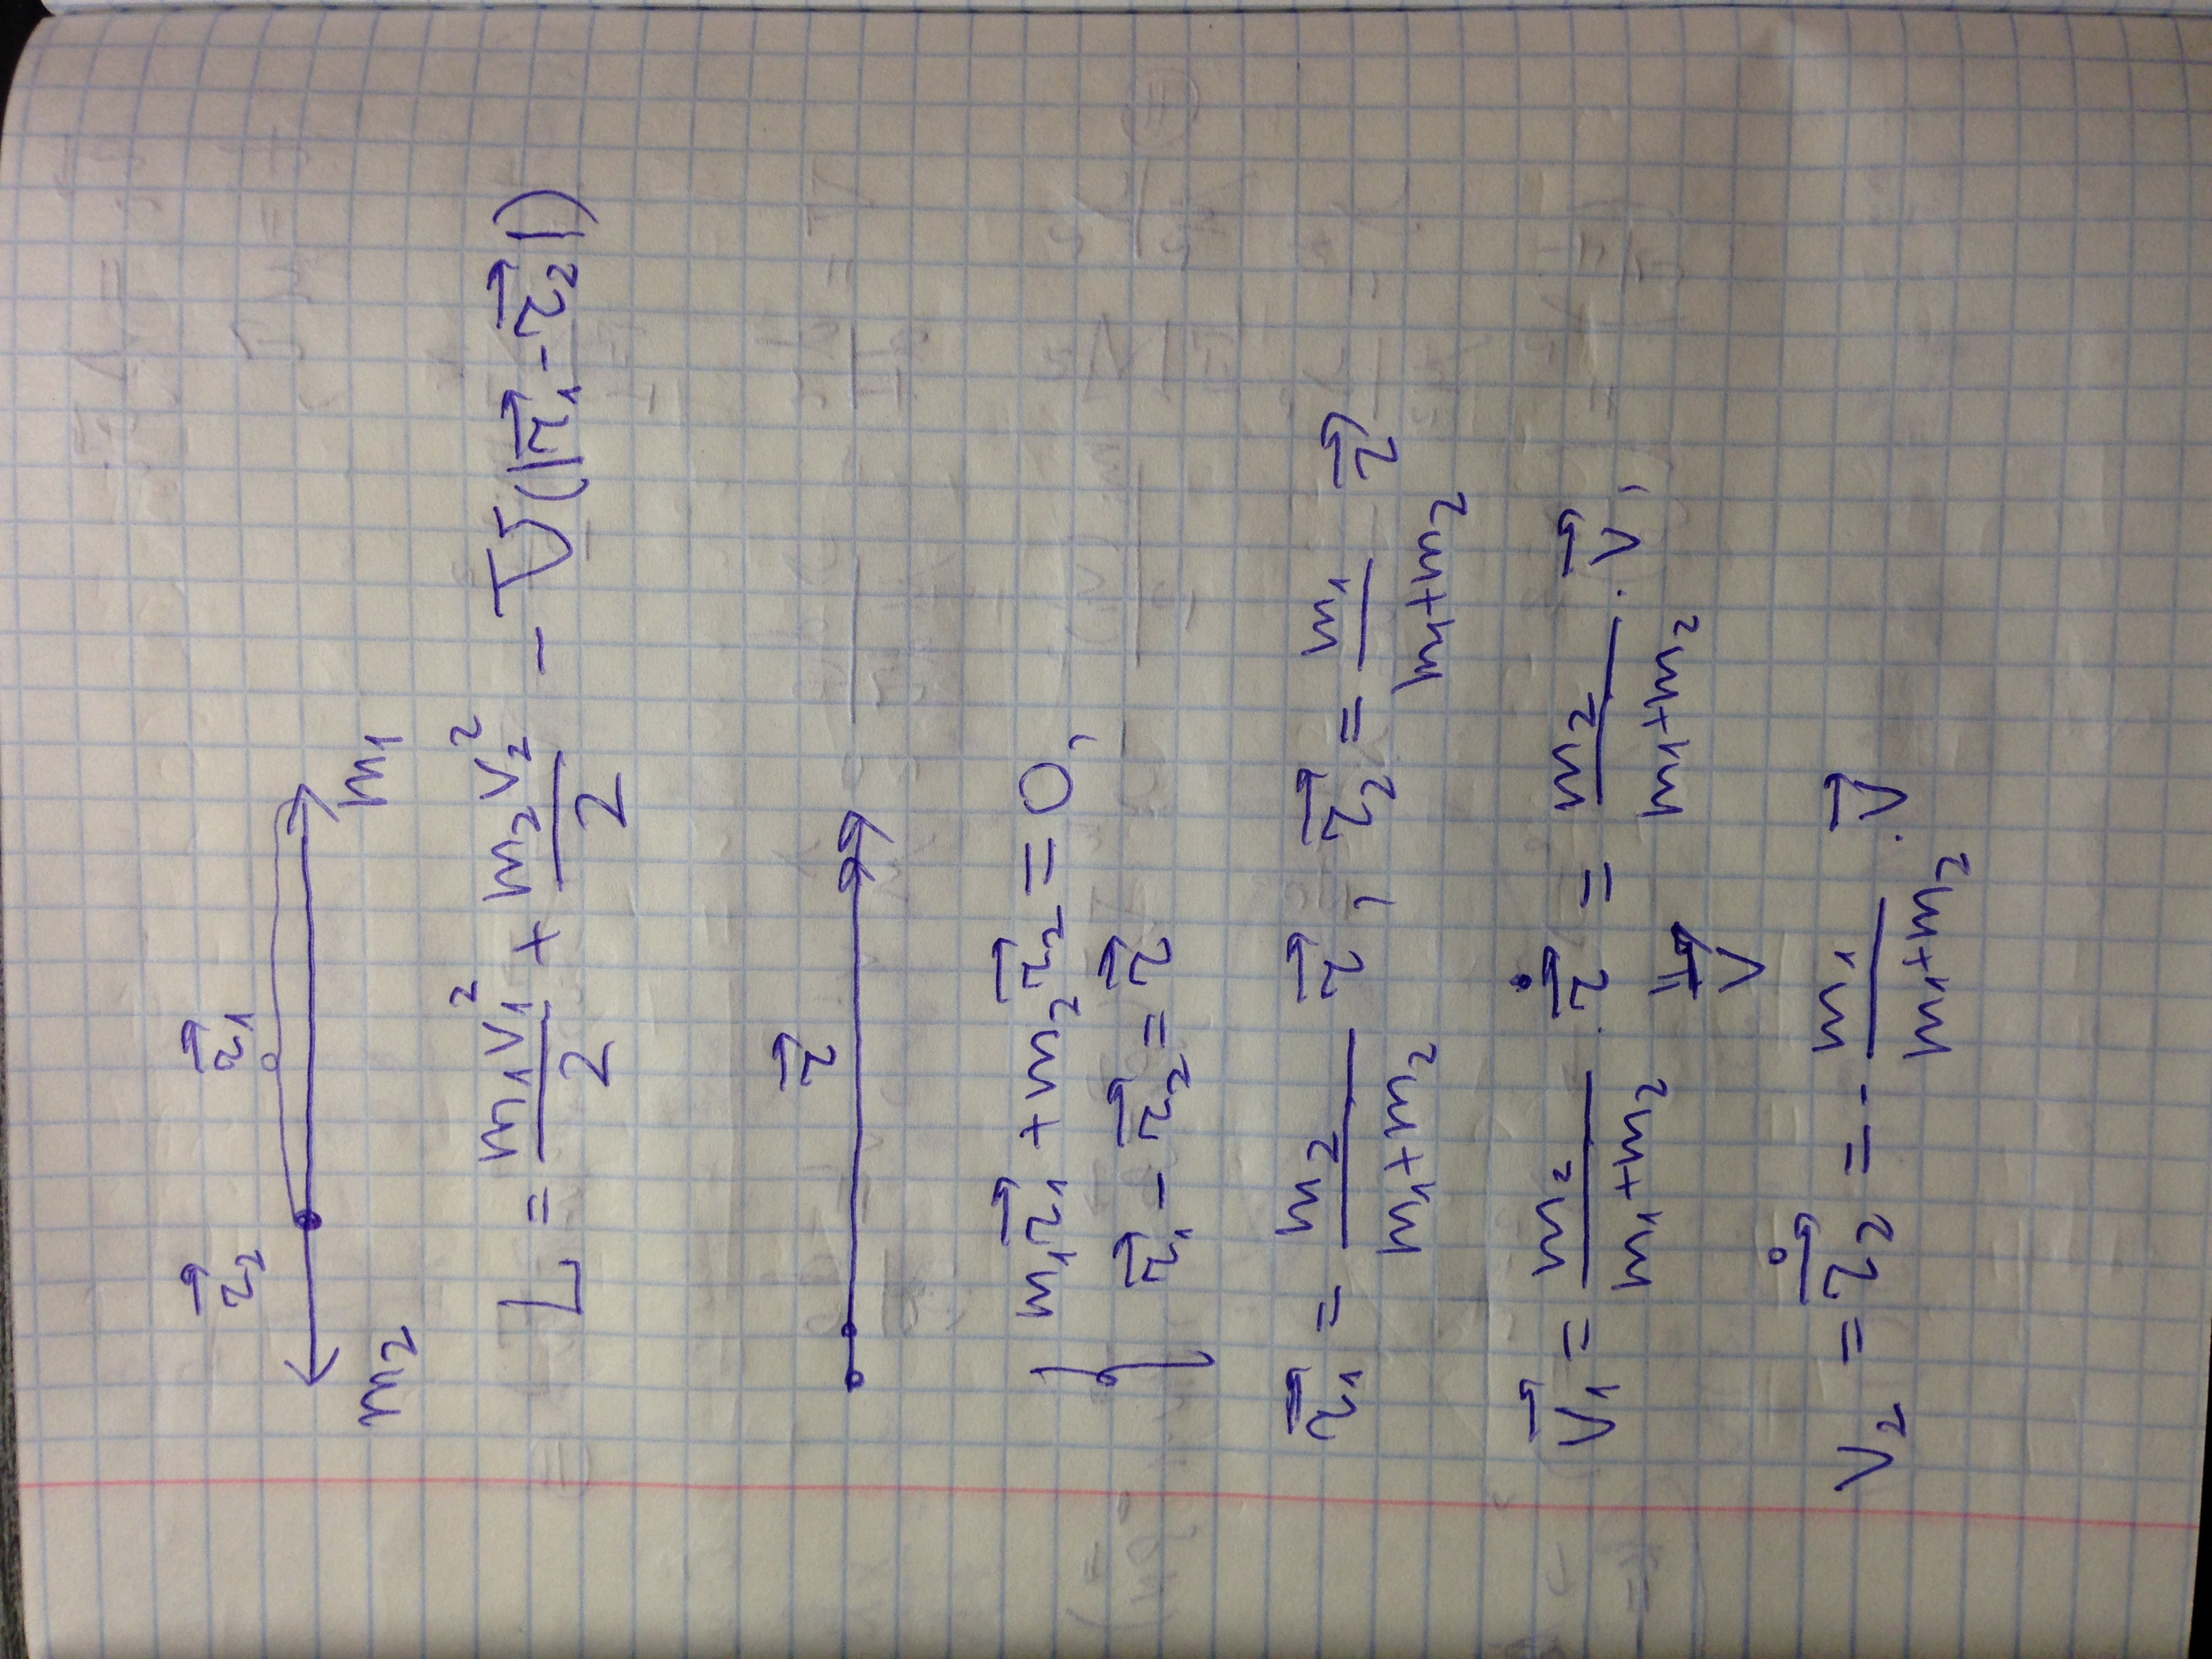 r⃗₂ r⃗₁
m₂ m₁
L = m₁v₁²/2 + m₂v₂²/2 - U(|r⃗₁ - r⃗₂|)
r⃗
{ m₁r⃗₁ + m₂r⃗₂ = 0,
r⃗₁ - r⃗₂ = r⃗
r⃗₁ = m₂/(m₁+m₂) r⃗, r⃗₂ = m₁/(m₁+m₂) r⃗
v⃗₁ = m₂/(m₁+m₂) · ṙ⃗ = m₂/(m₁+m₂) · v⃗,
v⃗
v₂ = ṙ⃗₂ = - m₁/(m₁+m₂) · v⃗